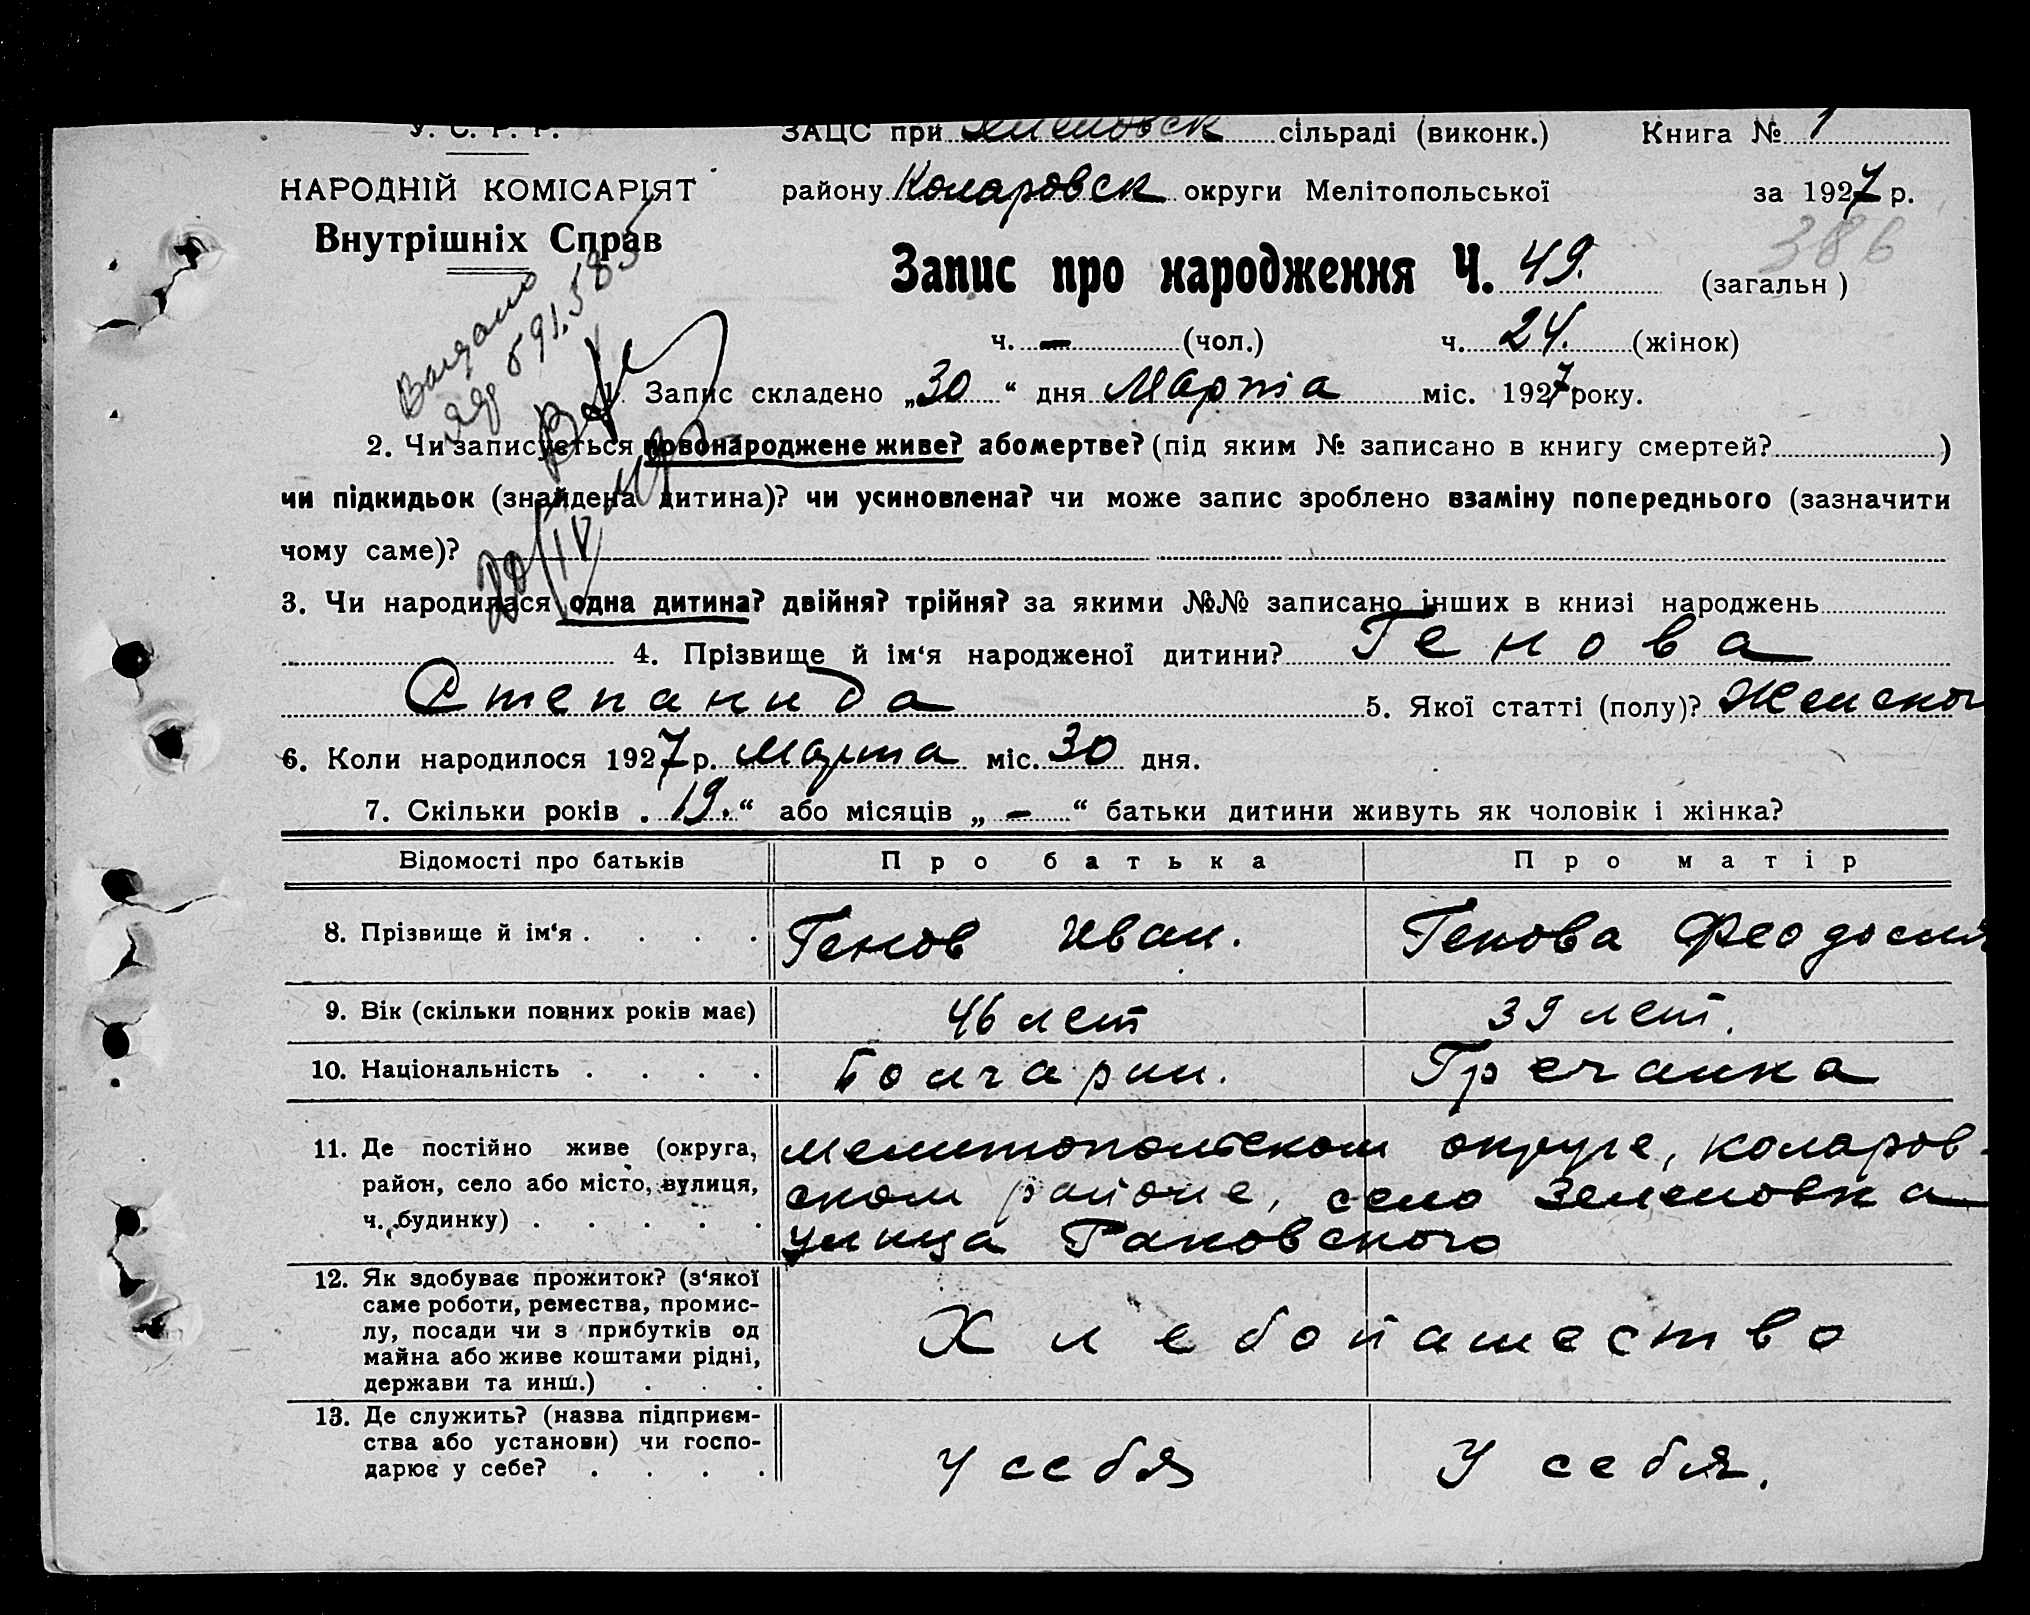 У. С. Р. Р.
ЗАЦС при Зеленовск сільраді (виконк.) Книга № 1
НАРОДНІЙ КОМІСАРІЯТ
району Коларовск округи Мелітопольської за 1927 р.
Внутрішніх Справ
386
Запис про народження Ч. 49. (загальн)
ч. - (чол.) ч. 24. (жінок)
Выдано
1. Запис складено „30“ дня Марта міс. 1927 року.
2. Чи записується новонароджене живе? або мертве? (під яким № записано в книгу смертей? )
чи підкидьок (знайдена дитина)? чи усиновлена? чи може запис зроблено взаміну попереднього (зазначити
чому саме)?
20/IV
3. Чи народилася одна дитина? двійня? трійня? за якими №№ записано інших в книзі народжень
4. Прізвище й ім‘я народженої дитини? Генова
Степанида 5. Якої статті (полу)? Женског
6. Коли народилося 1927 р. Марта міс. 30 дня.
7. Скільки років „19.“ або місяців „-“ батьки дитини живуть як чоловік і жінка?
Відомості про батьків Про батька Про матір
8. Прізвище й ім‘я . . . . Генов Иван. Генова Феодосия
9. Вік (скільки повних років має) 46 лет 39 лет.
10. Національність . . . . Болгарин. Гречанка
11. Де постійно живе (округа, Мелитопольском округе, Коларов-
район, село або місто, вулиця, ском районе, село Зеленовка
ч. будинку) . . . . . улица Раковского
12. Як здобуває прожиток? (з‘якої
саме роботи, ремества, промис-
лу, посади чи з прибутків од Хлебопашество
майна або живе коштами рідні,
держави та инш.) . . .
13. Де служить? (назва підприєм-
ства або установи) чи госпо- У себя У себя.
дарює у себе? . . . .